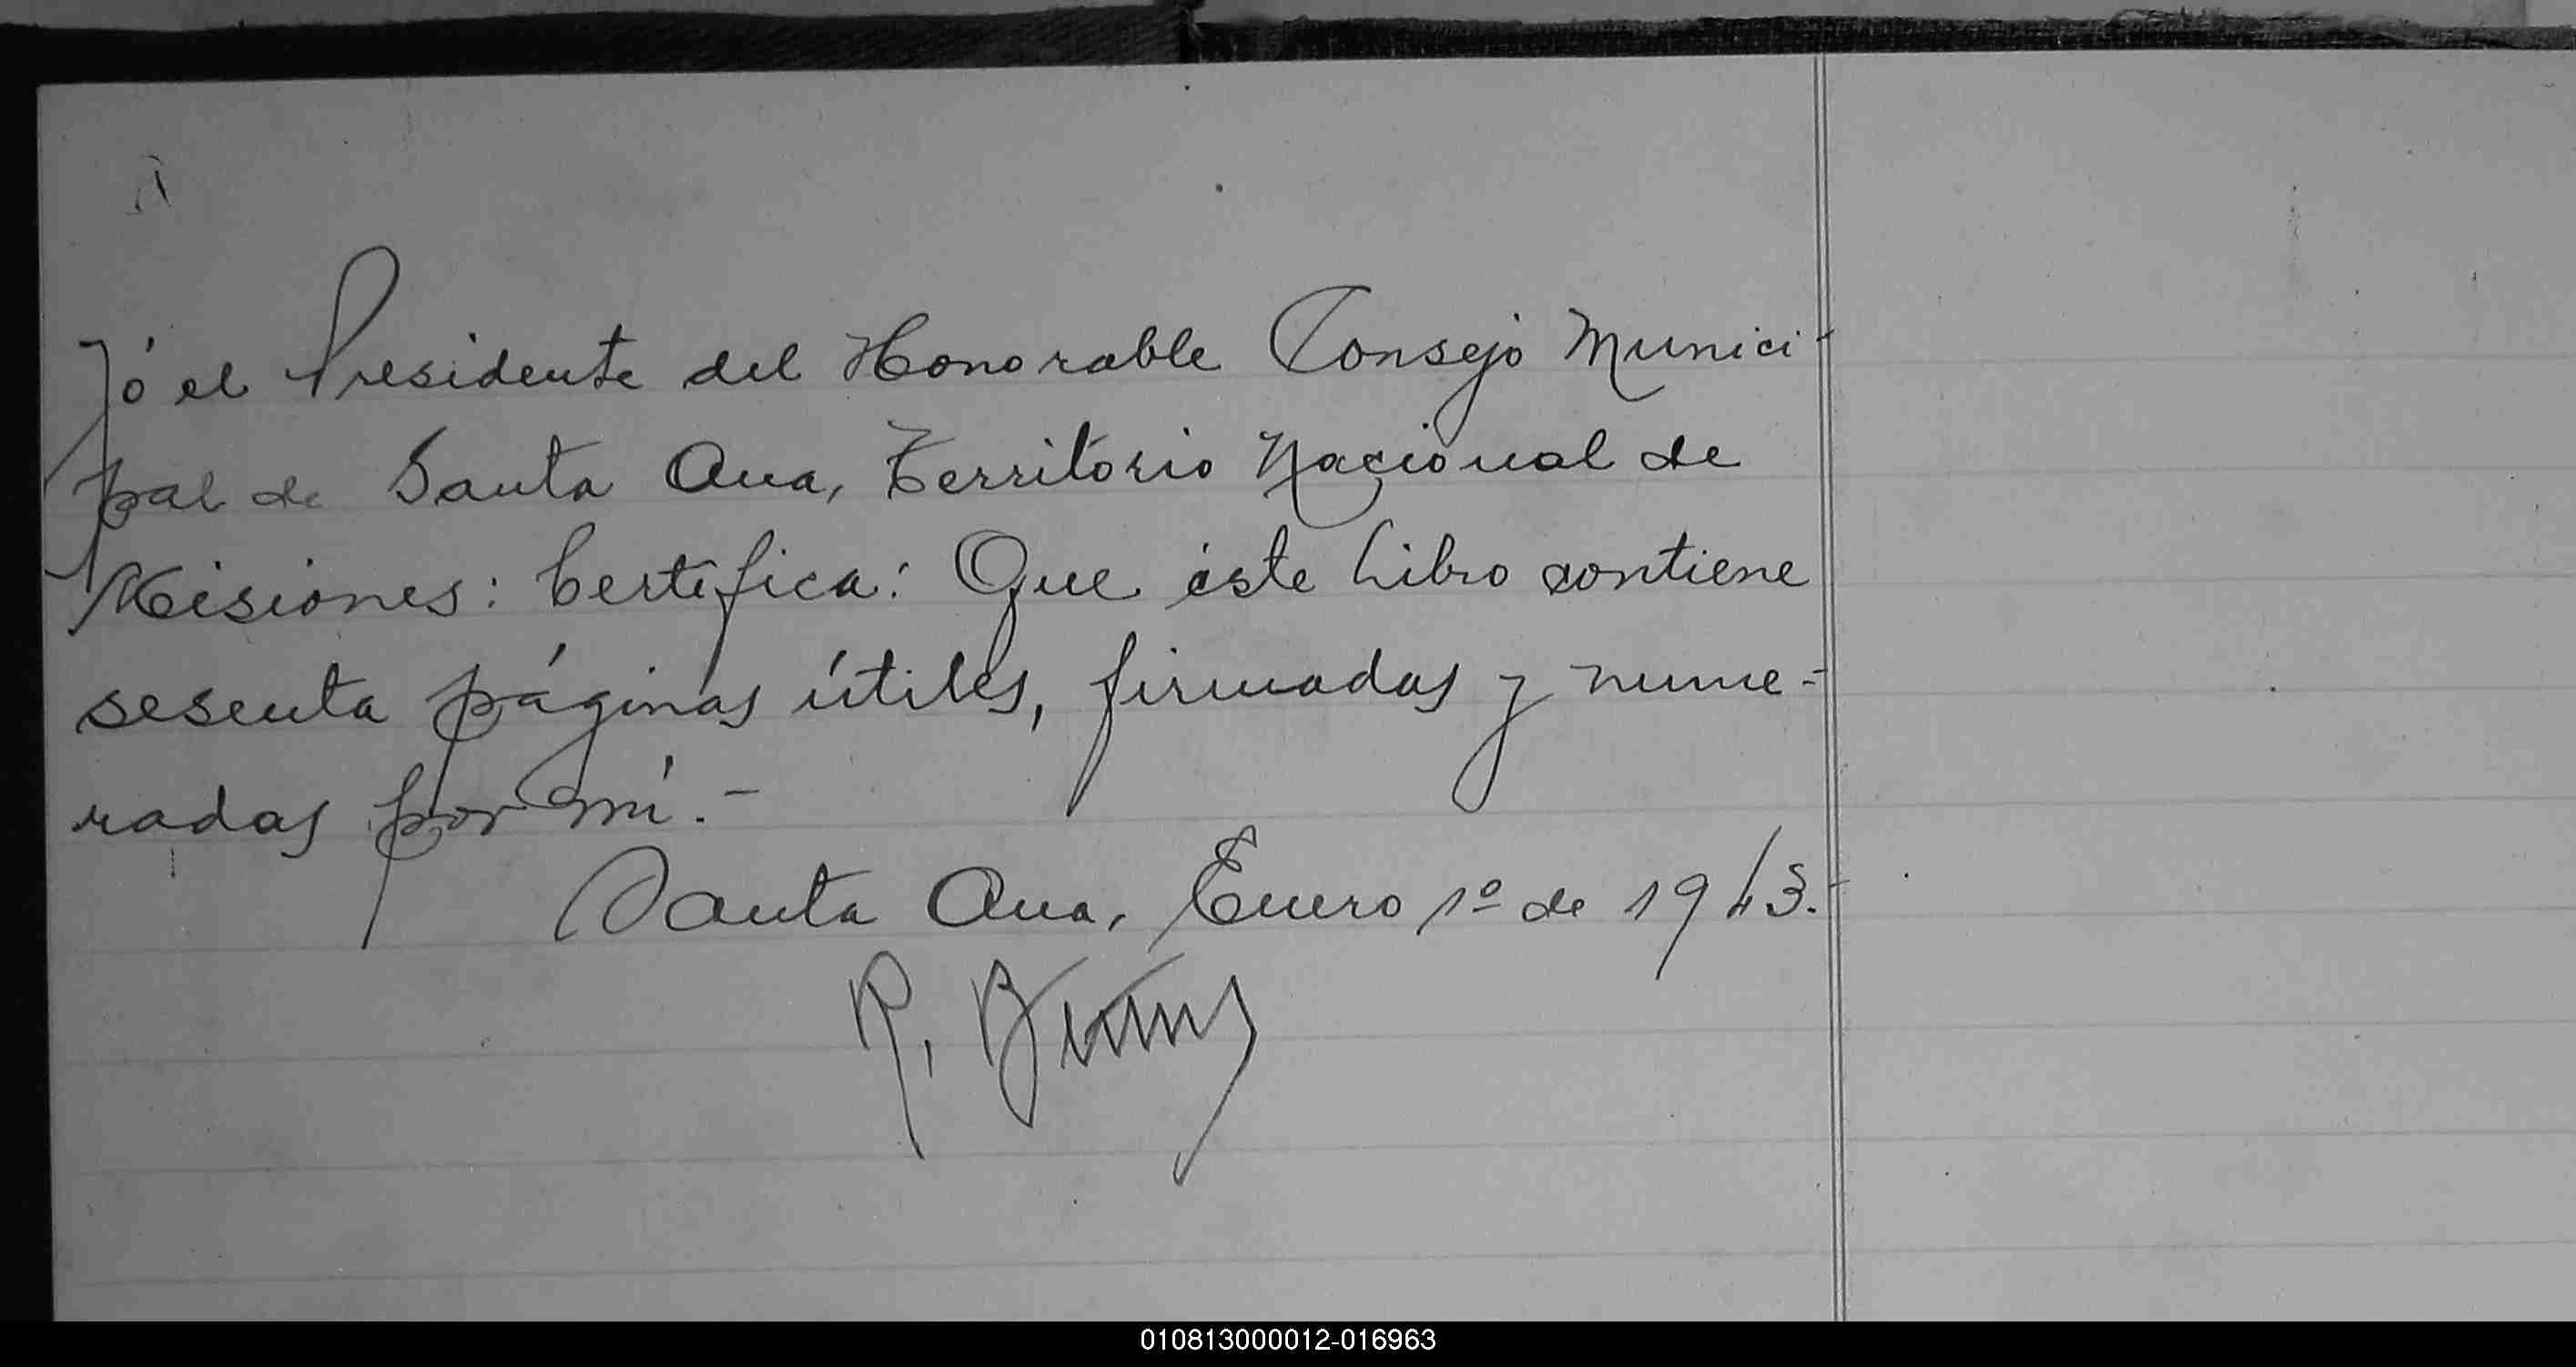 Yó el Presidente del Honorable Consejo Munici-
pal de Santa Ana, Territorio Nacional de
Misiones: Certifica: Que éste Libro contiene
sesenta páginas útiles, firmadas y nume-
radas por mí.-
Santa Ana, Enero 1º de 1943.-
R.
010813000012-016963